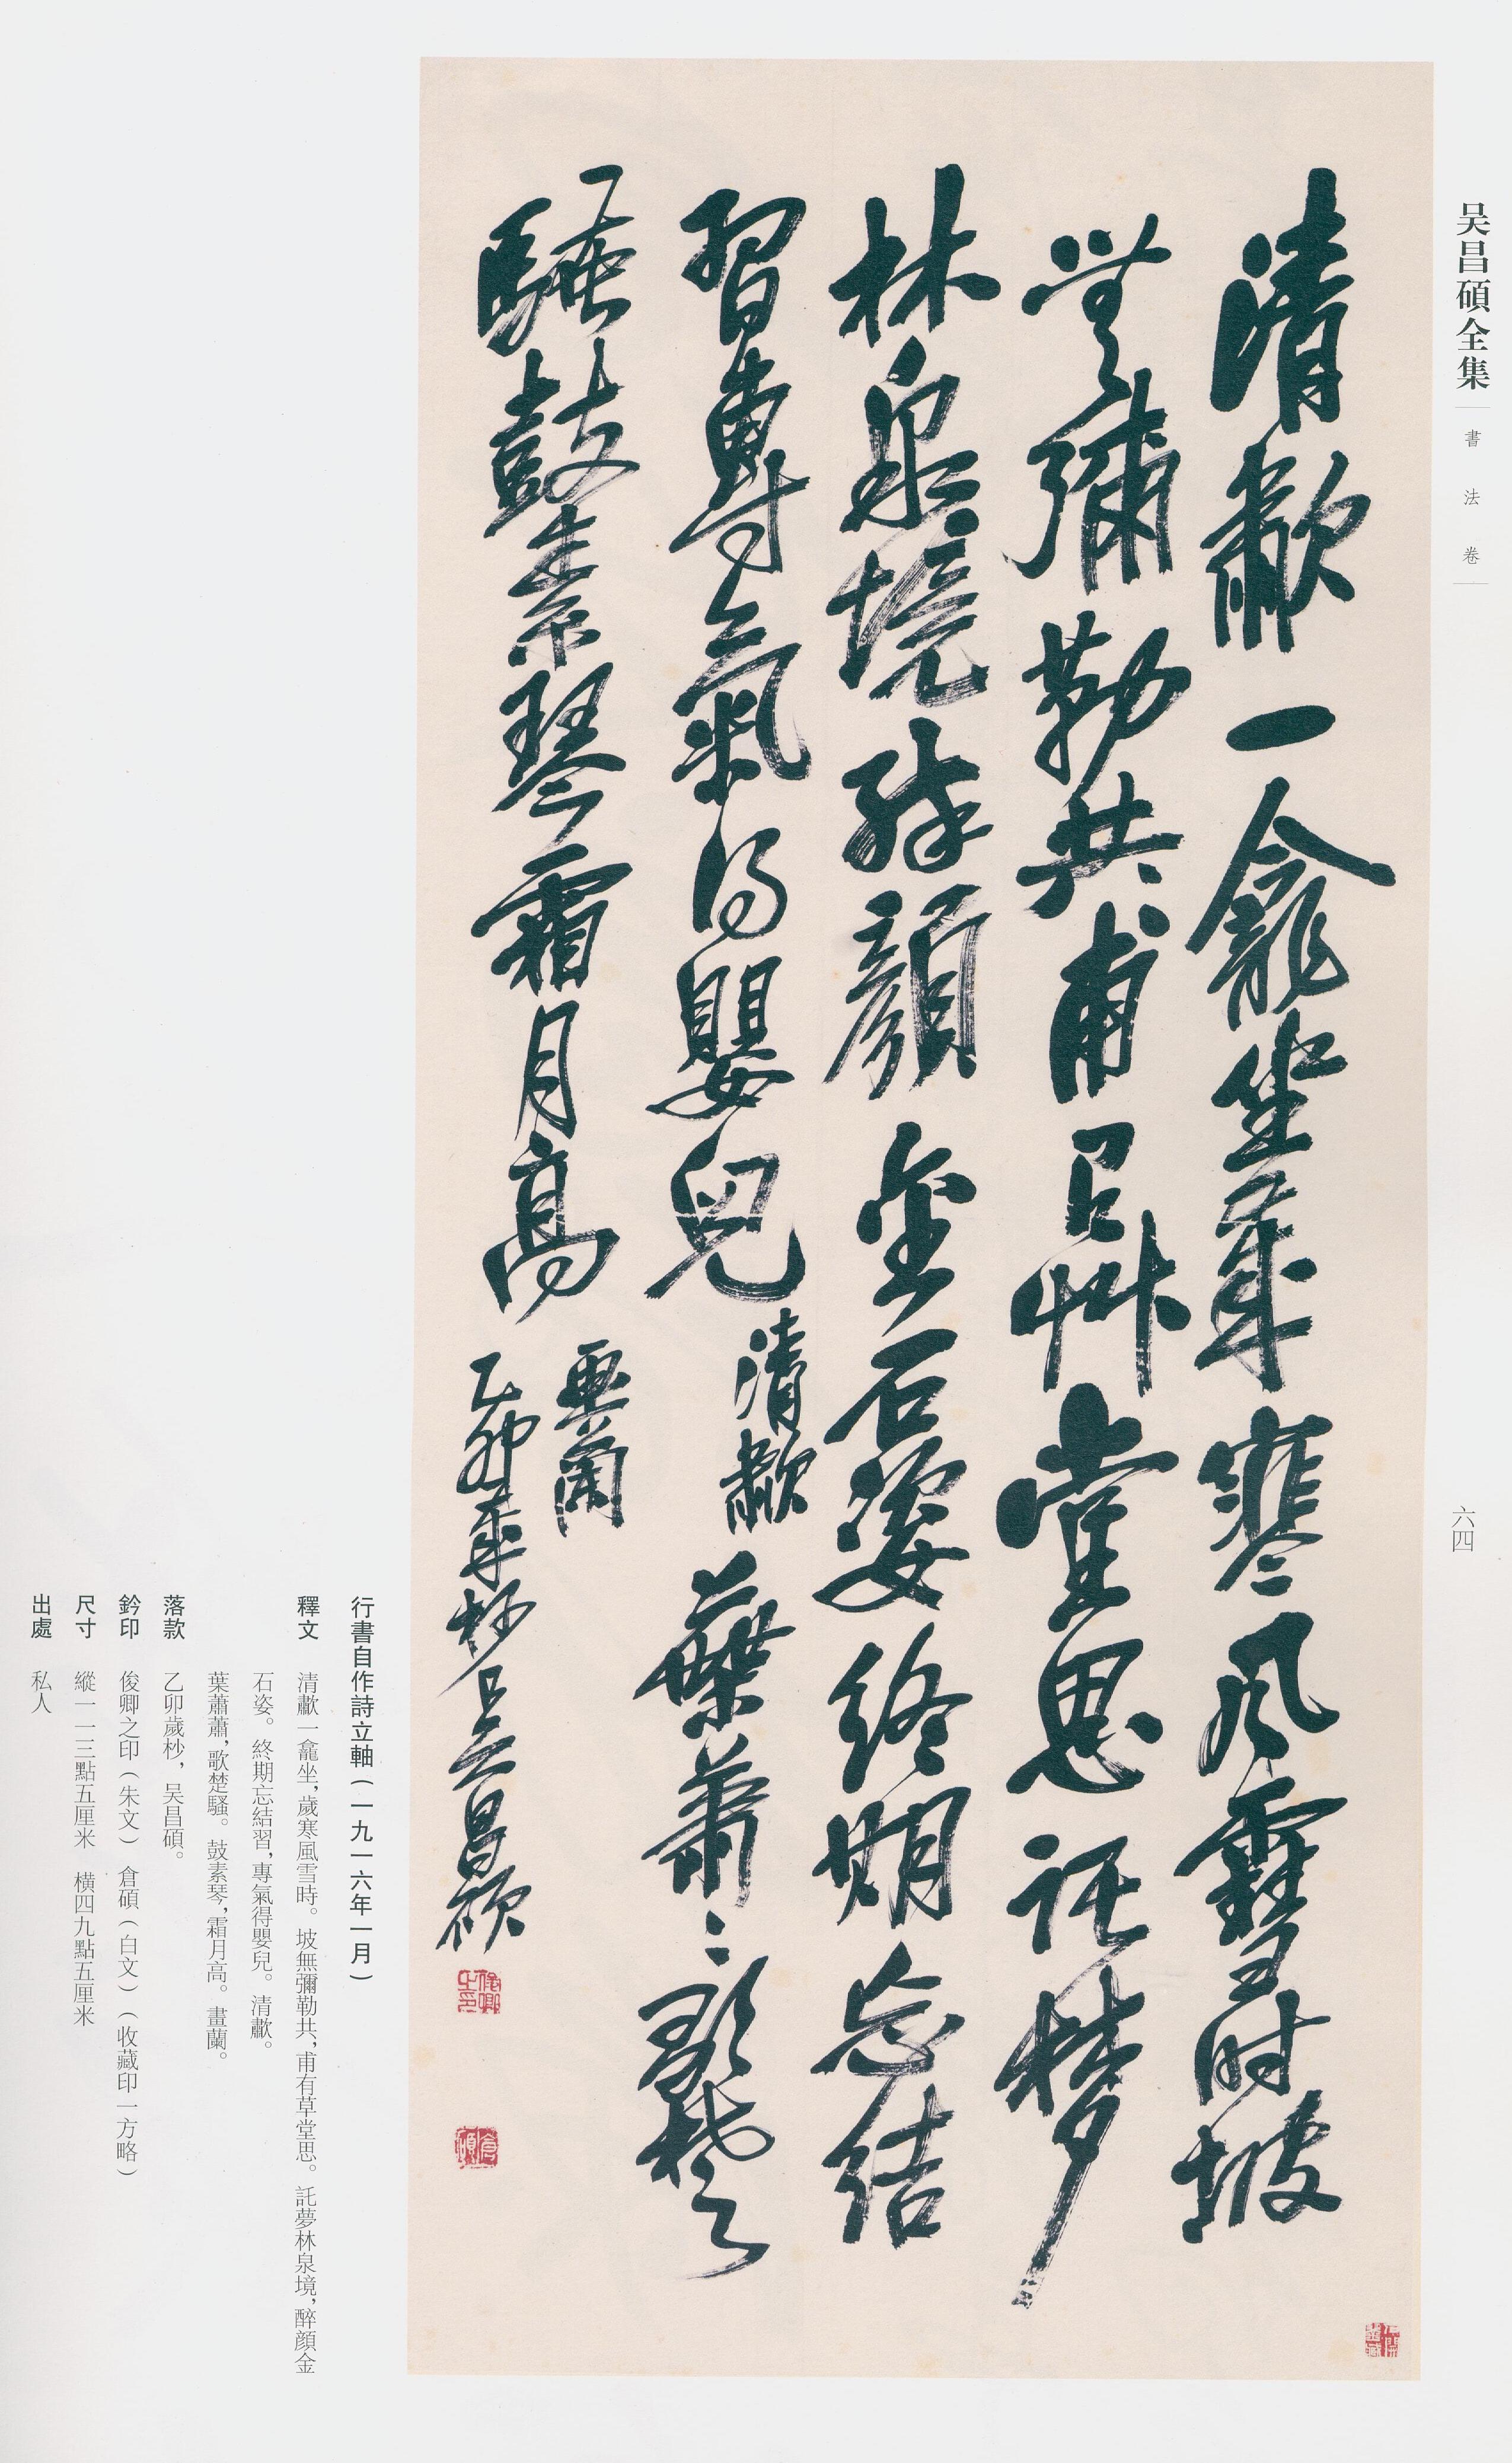 吴昌碩全集
書法卷
六四
清歗一龕坐歲寒風雪時坡
無彌勒共甫有艸堂思託梦
林泉境醉顔金石姿終期忘結
習專氣得嬰兒
清歗
葉蕭〻歌楚
騷鼓素琴霜月高
畫蘭
乙卯歲杪吴昌碩
俊卿之印
倉碩
行書自作詩立軸(一九一六年一月)
釋文 清歗一龕坐,歲寒風雪時。坡無彌勒共,甫有草堂思。託夢林泉境,醉顔金
石姿。終期忘結習,專氣得嬰兒。清歗。
葉蕭蕭,歌楚騷。鼓素琴,霜月高。畫蘭。
落款 乙卯歲杪,吴昌碩。
鈐印 俊卿之印(朱文) 倉碩(白文)(收藏印一方略)
尺寸 縱一一三點五厘米 橫四九點五厘米
出處 私人